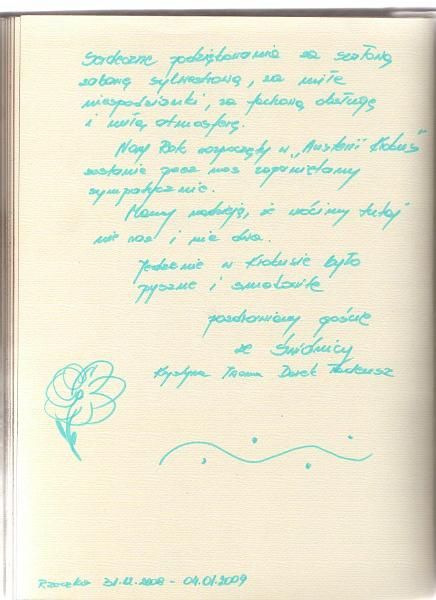 Serdeczne podziękowania za szaloną
zabawę sylwestrową, za miłe
niespodzianki, za fachową obsługę
i miłą atmosferę.
Nowy Rok rozpoczęty w „Austerii Krokus"
zostanie przez nas zapamiętany
sympatycznie.
Mamy nadzieję, że wrócimy tutaj
nie raz i nie dwa.
Jedzenie w Krokusie było
pyszne i smakowite
pozdrawiamy goście
ze Świdnicy
Krystyna Iwona Darek Tadeusz
Rzeczka 31.12.2008 - 04.01.2009